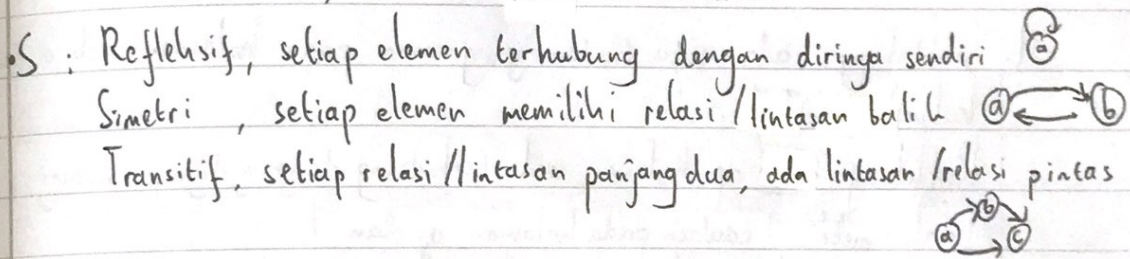 •S : Refleksif, setiap elemen terhubung dengan dirinya sendiri a
Simetri , setiap elemen memiliki relasi/lintasan balik a b
Transitif, setiap relasi/lintasan panjang dua, ada lintasan/relasi pintas
a b c